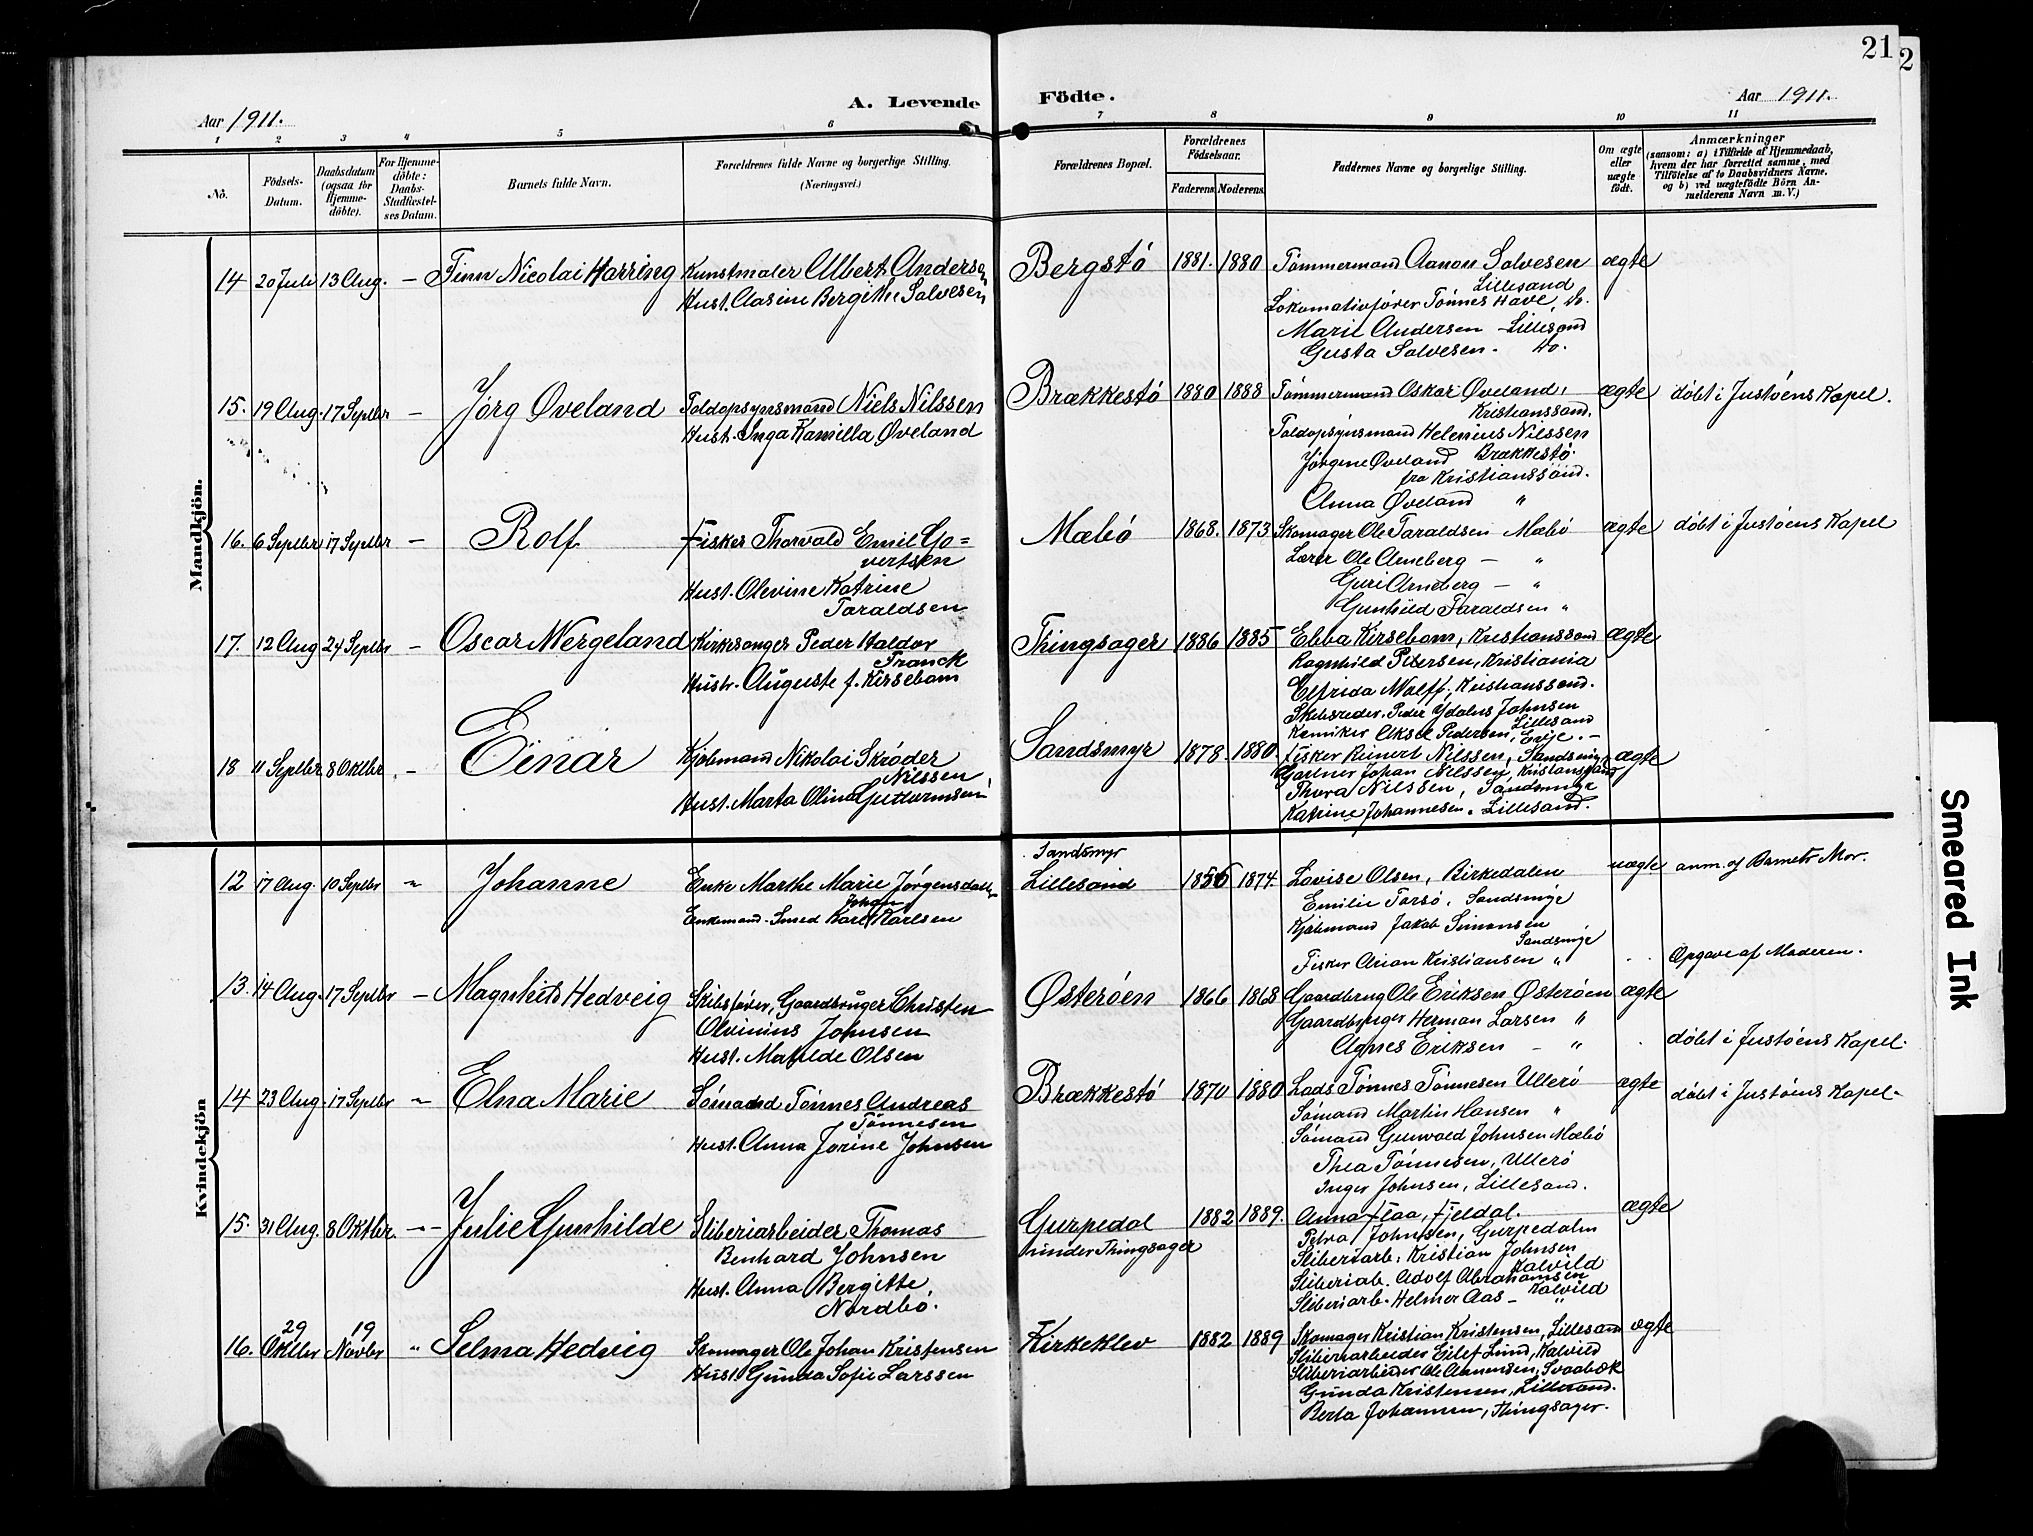 21
2
Aar 1911.
A. Levende
Födte.
Aar 1911.
1 2 3 4 5 6 7 8 9 10 11
No.
Födsels-
Datum.
Daabsdatum
(ogsaa for
Hjemme-
döbte).
For Hjemme-
döbte:
Daabs-
Stadfæstel-
ses Datum.
Barnets fulde Navn.
Forældrenes fulde Navne og borgerlige Stilling.
(Næringsvei.)
Forældrenes Bopæl.
Forældrenes
Födselsaar.
Faderens.
Moderens.
Faddernes Navne og borgerlige Stilling.
Om ægte
eller
uægte
födt.
Anmærkninger
(saasom: a) i Tilfælde af Hjemmedaab,
hvem der har forrettet samme, med
Tilföielse af to Daabsvidners Navne,
og b) ved uægtefödte Börn An-
melderens Navn m. V.)
Mandkjön.
14 20 Juli 13 Aug. – Finn Nicolai Harring Kunstmaler Albert Andersen
Hust. Clasine Bergithe Salvesen
Bergstö 1881. 1880 Tømmermand Aanon Salvesen ægte
Lillesand
Lokomativfører Tönnes Have, do.
Marie Andersen – Lillesand
Gusta Salvesen. do.
15. 19 Aug. 17 Septbr – Jörg Øveland Toldopsynsmand Niels Nilssen
Hust. Inga Kamilla Øveland
Brækkestö 1880 1888 Tømmermand Oskar Øveland, ægte døbt i Justøens Kapel.
Kristianssand.
Toldopsynsmand Helenius Nilssen
Brækkestö.
Jørgine Øveland
fra Kristianssand.
Anna Øveland "
16. 6 Septbr 17 Septbr – Rolf Fisker Thorvald Emil Go=
vertsen
Hust. Olevine Katrine
Taraldsen
Mæbö 1868. 1873 Skomager Ole Taraldsen Mæbö ægte døbt i Justøens Kapel
Lærer Ole Arneberg – "
Guri Arneberg – "
Gunhild Taraldsen "
17. 12 Aug 24 Septbr – Oscar Nergeland Kirkesanger Peder Haldor
Franck
Hustr. Auguste f. Kirsebom
Thingsager 1886 1885 Ebba Kirsebom, Kristianssand ægte
Ragnhild Petersen, Kristiania
Elfrida Wolff, Kristianssand.
Skibsreder. Peder Ydalus Johnsen
Lillesand
Kemiker Aksel Pedersen, Evje. –
18 11 Septbr 8 Oktbr. – Einar Kjøbmand Nikolai Skrøder
Nilssen
Hust. Marta Olina Guttormsen
Sandsmyr 1878. 1880. Fisker Reinert Nilssen, Sandsmyr, ægte
Gartner Johan Nilssen, Kristianssand
Thora Nilssen, Sandsmyr
Katrine Johannesen, Lillesand.
Kvindekjön
12 17 Aug. 10 Septbr " Johanne Enke Marthe Marie Jørgensdatter
Johan
Enkemand. Smed Karl Karlsen
Sandsmyr
Lillesand 1856 1874. Lovise Olsen, Birkedalen uægte anm. af Barnets Mor.
Emilie Torsö, Sandsmyr
Kjøbmand Jakob Simonsen
Sandsmyr
Fisker Arian Kristiansen " Opgave af Moderen.
13. 14 Aug. 17 Septbr – Magnhild Hedveig Skibsfører, Gaardbruger Christen
Olvinius Johnsen
Hust. Matilde Olsen
Østerøen 1866 1868 Gaardbrug Ole Eriksen Østerøen ægte
Gaardbruger Herman Larsen "
Agnes Eriksen – " døbt i Justøens Kapel.
14 23 Aug. 17 Septbr " Elna Marie Sömand Tönnes Andreas
Tönnesen
Hust. Anna Jorine Johnsen
Brækkestö 1870 1880 Lods Tönnes Tönnesen Ullerö ægte døbt i Justøens Kapel.
Sömand Martin Hansen "
Sömand Gunvald Johnsen Mæbö
Thea Tönnesen, Ullerö
Inger Johnsen, Lillesand.
15. 31 Aug. 8 Oktbr. – Julie Gunhilde Sliberiarbeider Thomas
Benhard Johnsen
Hust. Anna Bergitte
Nordbö.
Gurpedal
under Thingsager
1882 1889. Anna Flaa, Fjeldal. ægte
Petra Johnsen, Gurpedalen
Sliberiarb. Kristian Johnsen
Kalvild
Sliberiab. Adolf Abrahamsen
Sliberiarb. Helmer Aas – Kalvild
16. 29 Oktbr 19 Novbr " Selma Hedvig Skomager Ole Johan Kristensen
Hust. Gunda Sofie Larssen
Kirkeklev 1882 1889 Skomager Kristian Kristensen, Lillesand ægte
Sliberiarbeider Eilef Lund, Kalvild
Sliberiarbeider Ole Aanensen, Svaabæk
Gunda Kristensen, Lillesand.
Berta Johannen, Thingsager.
Smeared Ink